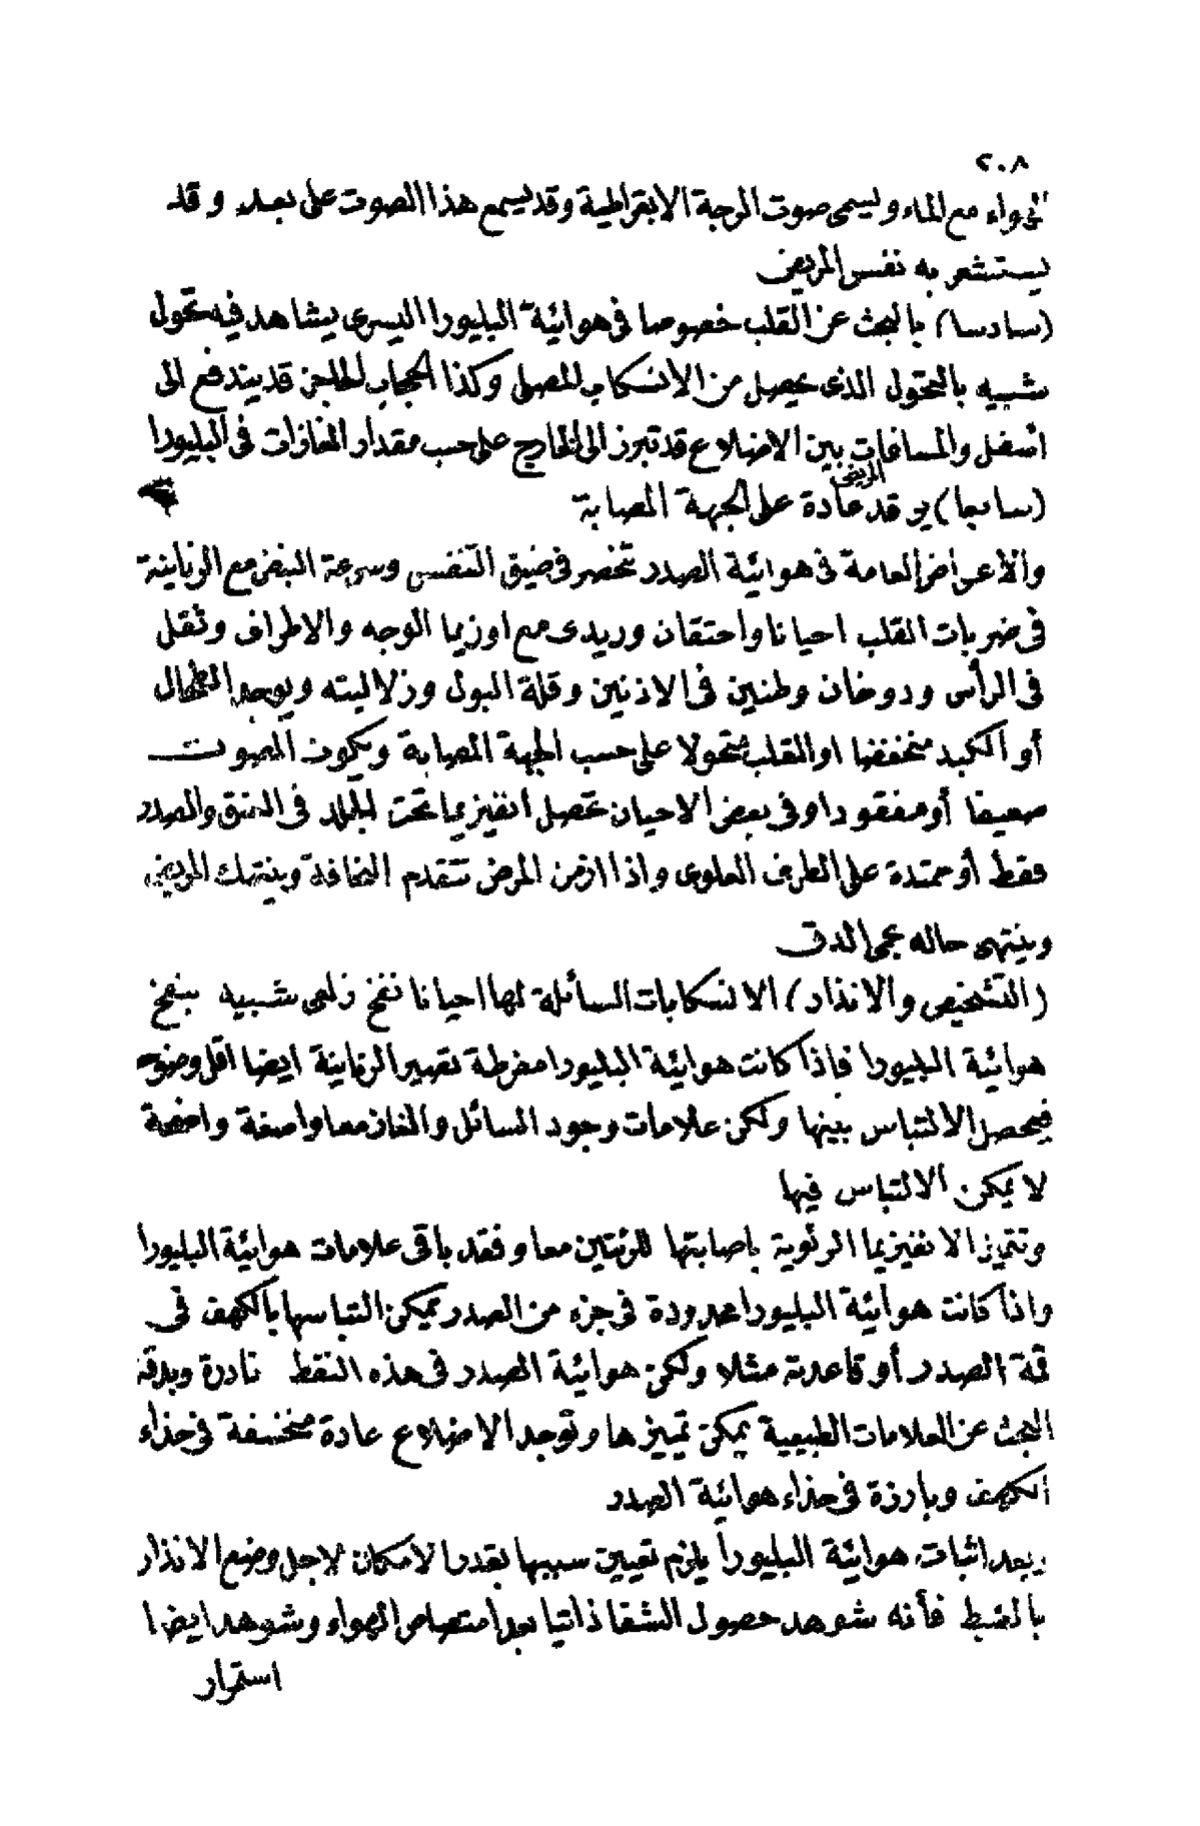 ٢٠٨
الهواء مع الماء ويسمى صوت الرجة الابقراطية وقد يسمع هذا الصوت على بعد وقد
يستشعر به نفس المريض
(سادسا) بالبحث عن القلب خصوصا فى هوائية البليورا اليسرى يشاهد فيه تحول
شبيه بالتحول الذى يحصل من الانسكاب المصلى وكذا الحجاب الحاجز قد يندفع الى
اسفل والمسافات بين الاضلاع قد تبرز الى الخارج على حسب مقدار الغازات فى البليورا
(سابعا) يرقد المريض عادة على الجهة المصابة
والاعراض العامة فى هوائية الصدر تنحصر فى ضيق التنفس وسرعة النبض مع الرنانية
فى ضربات القلب احيانا واحتقان وريدى مع اوزيما الوجه والاطراف وثقل
فى الرأس ودوخان وطنين فى الاذنين وقلة البول وزلاليته ويوجد الطحال
أو الكبد منخفضا او القلب متحولا على حسب الجهة المصابة ويكون الصوت
ضعيفا أو مفقودا وفى بعض الاحيان تحصل انفيزيما تحت الجلد فى العنق والصدر
فقط أو ممتدة على الطرف العلوى واذا ازمن المرض تتقدم النحافة وينتهك المريض
وينتهى حاله بحمى الدق
(التشخيص والانذار) الانسكابات السائلة لها احيانا نفخ زلعى شبيه بنفخ
هوائية البليورا فاذا كانت هوائية البليورا مفرطة تصير الرنانية ايضا اقل وضوحا
فيحصل الالتباس بينها ولكن علامات وجود السائل والغاز معا واصفة واضحة
لا يمكن الالتباس فيها
وتتميز الانفيزيما الرئوية باصابتها للرئتين معا وفقد باقى علامات هوائية البليورا
واذا كانت هوائية البليورا محدودة فى جزء من الصدر يمكن التباسها بالكهف فى
قمة الصدر أو قاعدته مثلا ولكن هوائية الصدر فى هذه النقط نادرة وبدقة
البحث عن العلامات الطبيعية يمكن تمييزها وتوجد الاضلاع عادة منخسفة فى حذاء
الكهف وبارزة فى حذاء هوائية الصدر
وبعد اثبات هوائية البليورا يلزم تعيين سببها بقدر الامكان لاجل وضع الانذار
بالضبط فأنه شوهد حصول الشفا ذاتيا بعد امتصاص الهواء وشوهد ايضا
استمرار